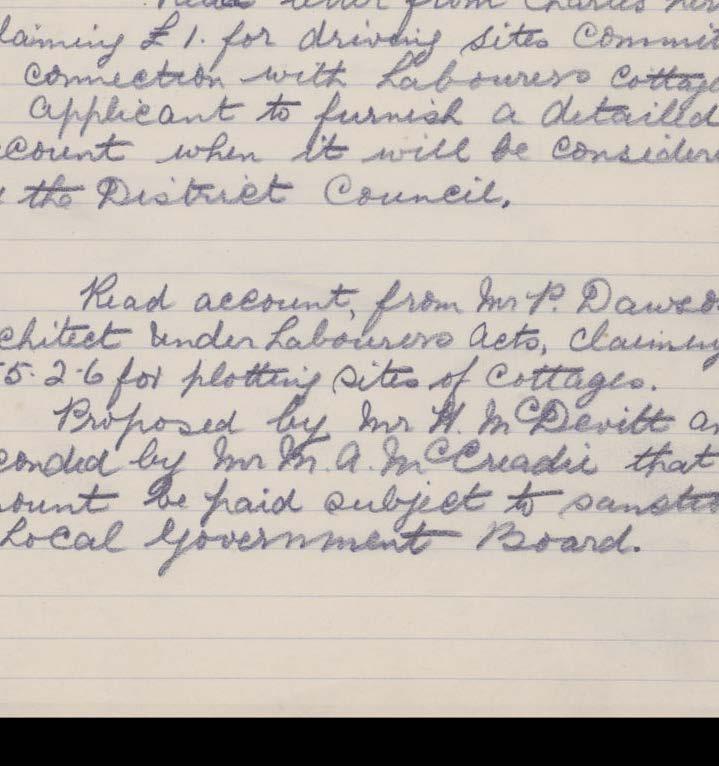 Read letter from Charles
laiming £1. for driving sites Commit
connection with Labourers Cottage
Applicant to furnish a detailed
ccount when it will be consider
the District Council.
Read account, from Mr P. Dawso
chitect under Labourers Acts, claiming
5-2-6 for plotting sites of Cottages.
Proposed by Mr H. McDevitt an
conded by Mr M. A. McCreadie that
ount be paid subject to sanctio
Local Government Board.